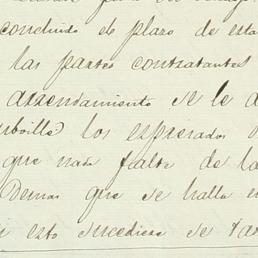 concluido el plazo de esta
las partes contratantes
arrendamiento se le d
los espresados
que nada falte de la
Demas que se halla en
si esto sucediese se tas